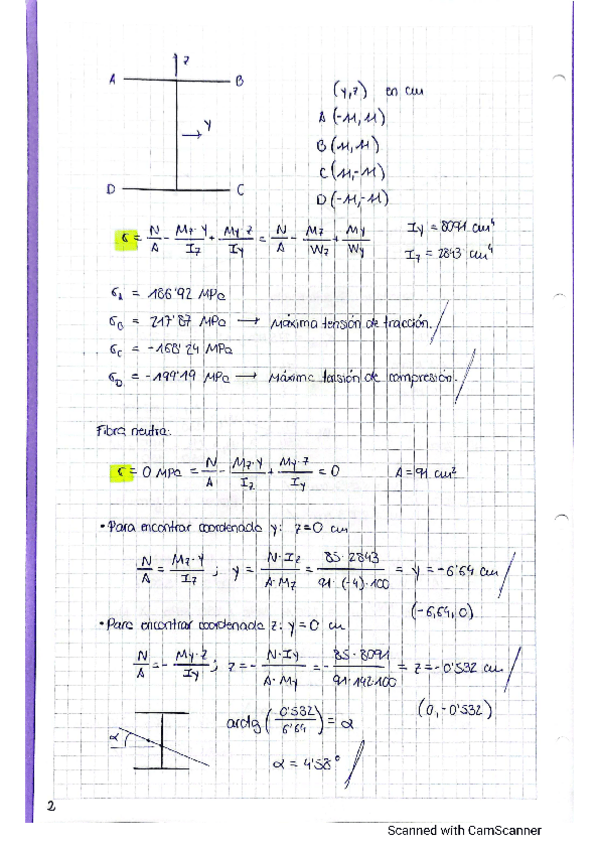 z
A B
Y
D C
(y,z) en cm
A (-11, 11)
B (11, 11)
C (11,-11)
D (-11,-11)
σ = N/A - Mz·y/Iz + My·z/Iy = N/A - Mz/Wz + My/Wy
Iy = 8091 cm⁴
Iz = 2843 cm⁴
σA = 186'92 MPa
σB = 217'87 MPa → Máxima tensión de tracción.
σC = -168'24 MPa
σD = -199'19 MPa → Máxima tensión de compresión.
Fibra neutra:
σ = 0 MPa = N/A - Mz·y/Iz + My·z/Iy = 0 A = 91 cm²
• Para encontrar coordenada y: z=0 cm
N/A = Mz·y/Iz ; y = N·Iz/A·Mz = 85·2843/91·(-4)·100 = y = -6'64 cm
(-6,64, 0)
• Para encontrar coordenada z: y=0 cm
N/A = - My·z/Iy ; z = - N·Iy/A·My = - 85·8091/91·142·100 = z = -0'532 cm
(0, -0'532)
α
arctg (0'532/6'64) = α
α = 4'58°
2
Scanned with CamScanner